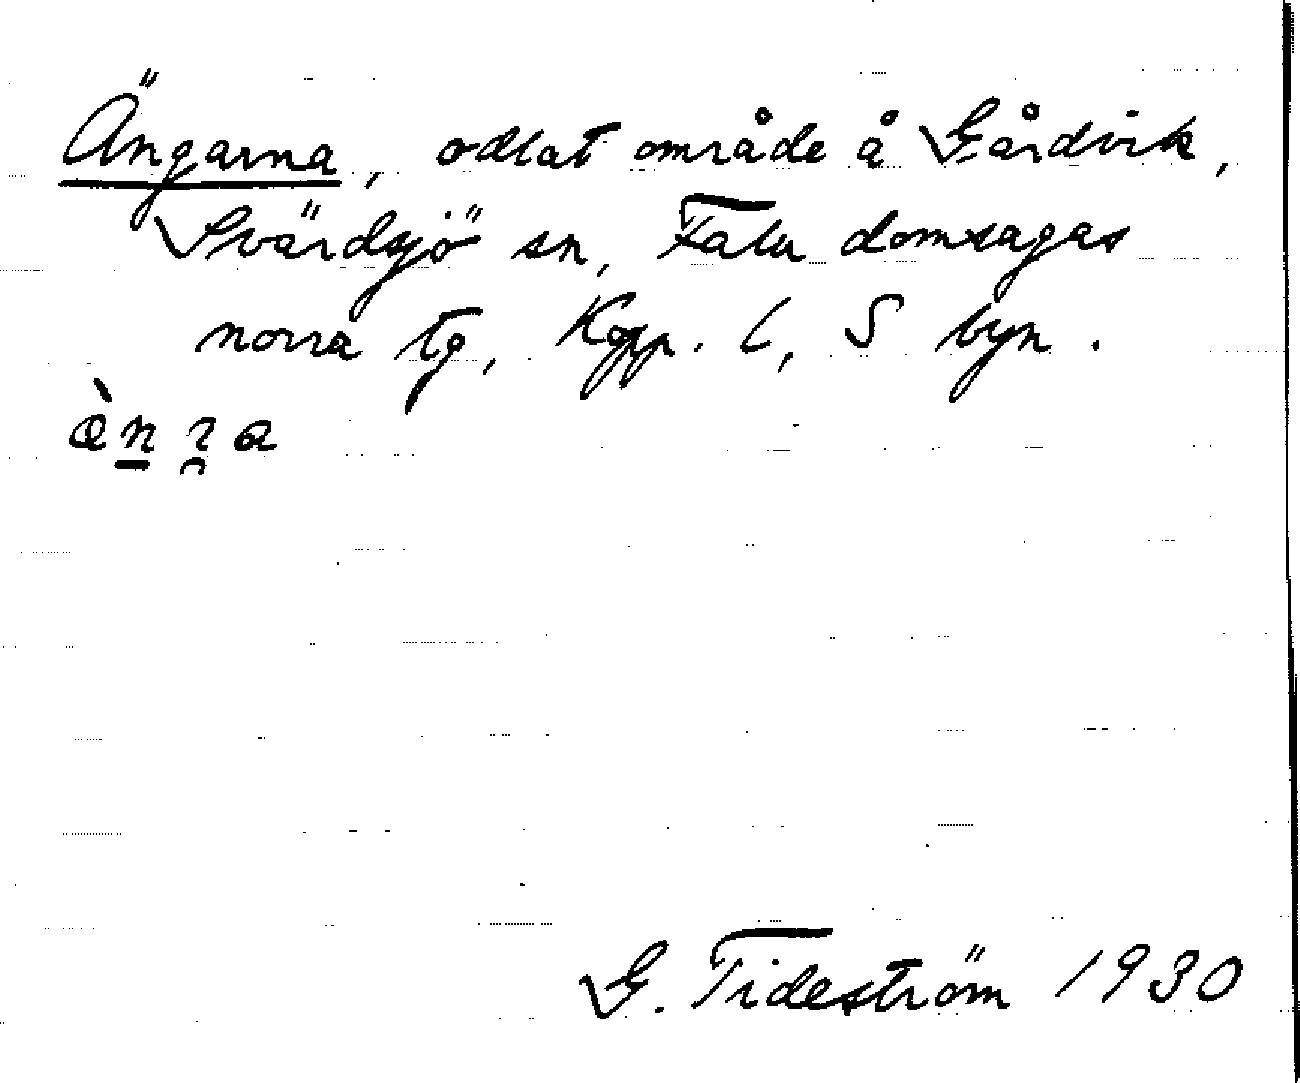 Ängarna, odlat område å Gårdvik,
Svärdsjö sn, Falu domsagas
norra tg, Kopp. l, S byn.
G. Tideström 1930